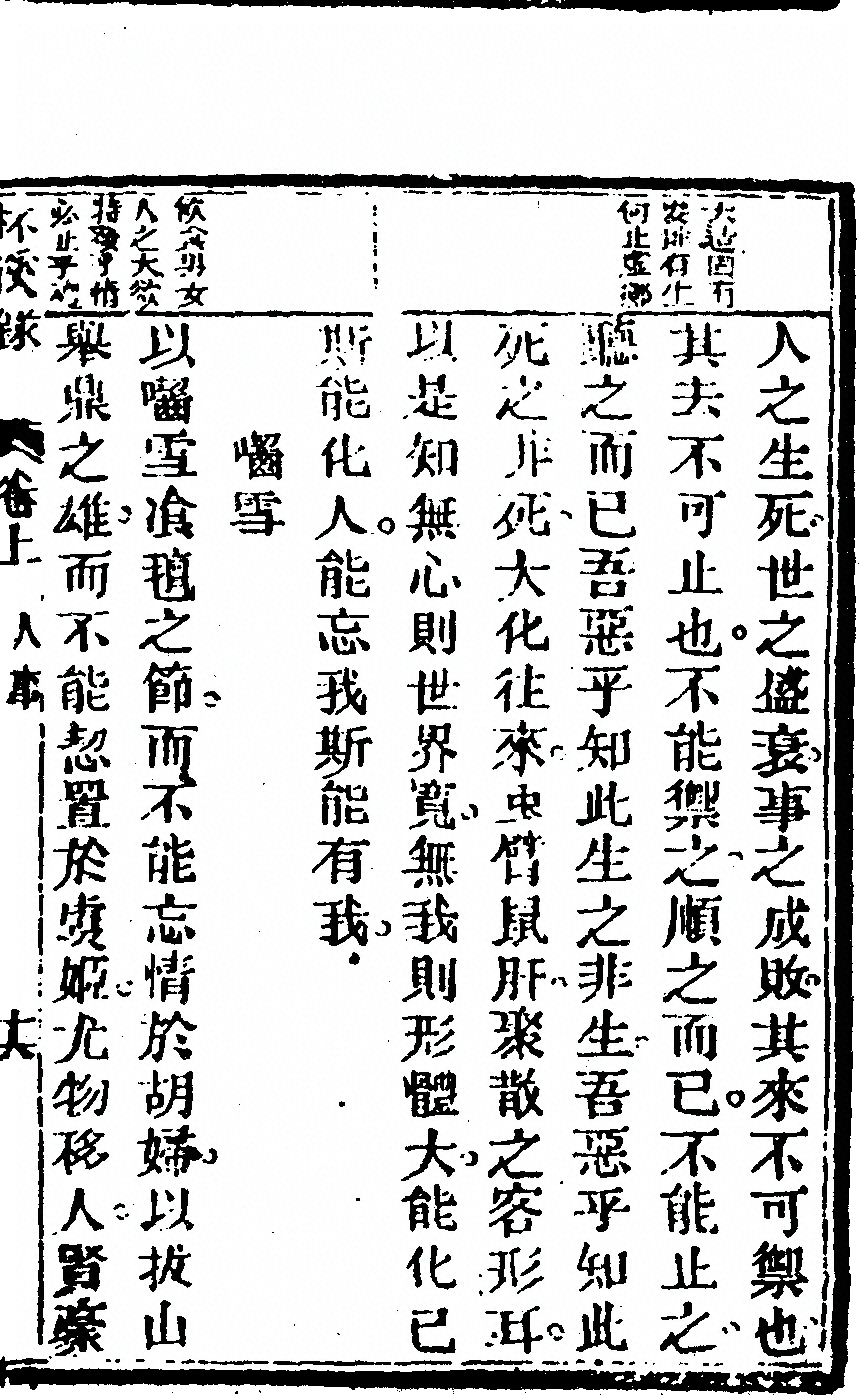 大造固有
安排有生
何止虛鄉
人之生死世之盛衰事之成敗其來不可禦也
其去不可止也不能禦之順之而已不能止之
聽之而已吾惡乎知此生之非生吾惡乎知此
死之非死大化往來虫臂鼠肝聚散之容形耳
以是知無心則世界寬無我則形體大能化已
斯能化人能忘我斯能有我
嚙雪
飲食男女
人之大欲
必止乎
以嚙雪飡氊之節而不能忘情於胡婦以拔山
舉鼎之雄而不能恝置於虞姬尤物移人賢豪
卷上
人事
十六